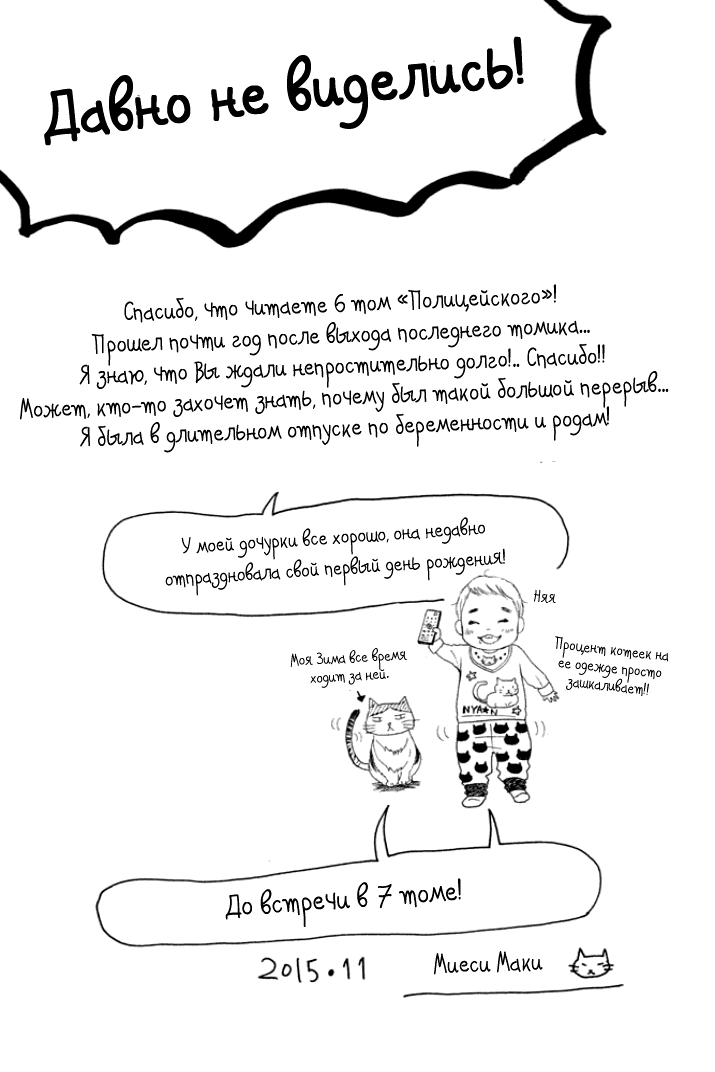 Давно не виделись!
Спасибо, что читаете 6 том «Полицейского»!
Прошел почти год после выхода последнего томика...
Я знаю, что Вы ждали непростительно долго!.. Спасибо!!
Может, кто-то захочет знать, почему был такой большой перерыв...
Я была в длительном отпуске по беременности и родам!
У моей дочурки все хорошо, она недавно
отпраздновала свой первый день рождения!
Няя
Моя Зима все время
ходит за ней.
Процент котеек на
ее одежде просто
зашкаливает!!
NYA★N
До встречи в 7 томе!
2015.11
Миеси Маки